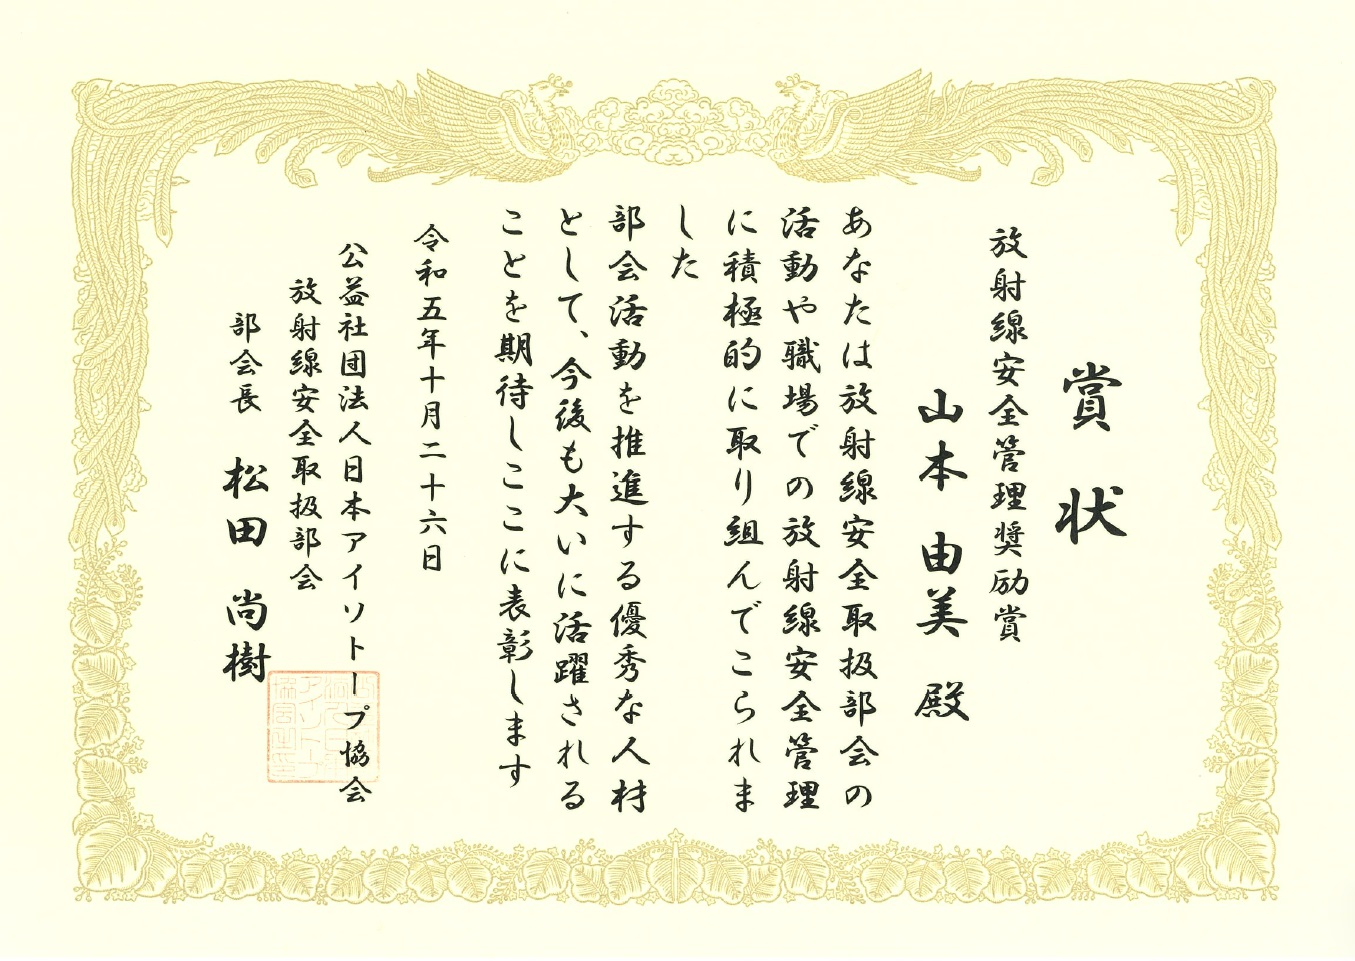 賞状
放射線安全管理奨励賞
山本 由美 殿
あなたは放射線安全取扱部会の
活動や職場での放射線安全管理
に積極的に取り組んでこられま
した
部会活動を推進する優秀な人材
として、今後も大いに活躍される
ことを期待しここに表彰します
令和五年十月二十六日
公益社団法人日本アイソトープ協会
放射線安全取扱部会
部会長 松田 尚樹